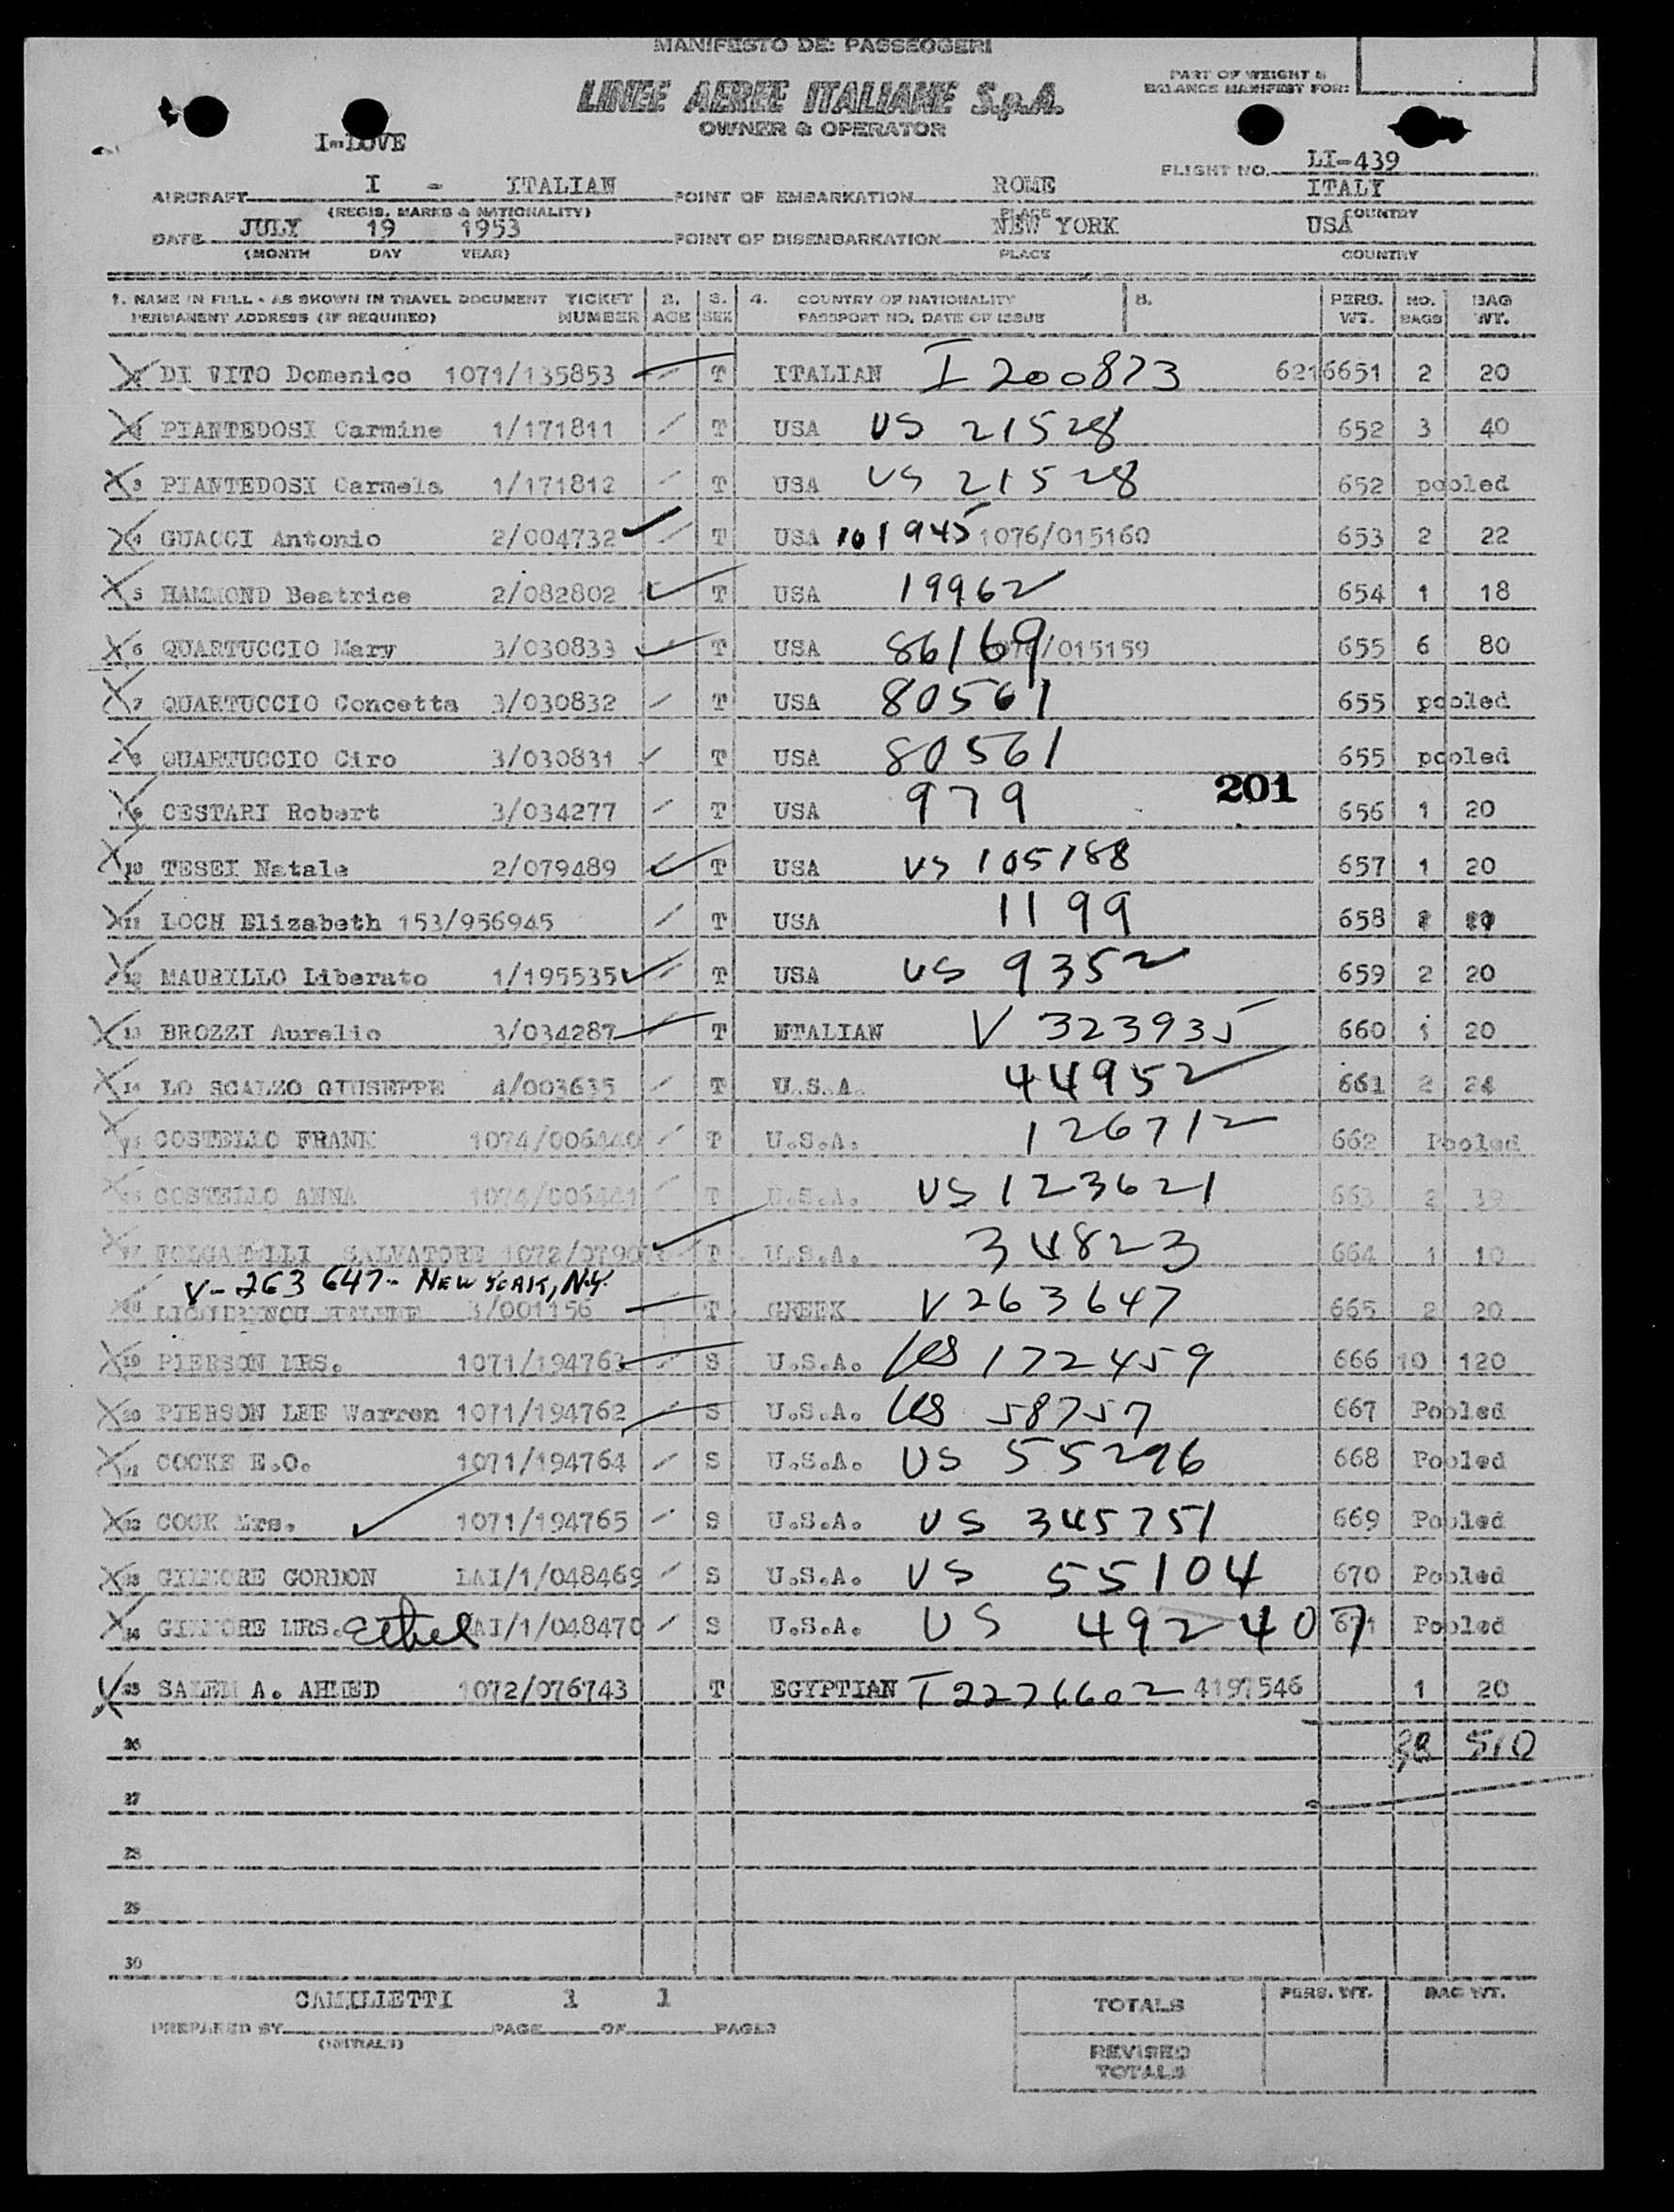 MANIFESTO DE: PASSEOGERI
LINEE AEREE ITALIANE S.p.A.
OWNER & OPERATOR
PART OF WEIGHT &
BALANCE MANIFEST FOR:
I-LOVE
FLIGHT NO. LI-439
AIRCRAFT I - ITALIAN POINT OF EMBARKATION ROME ITALY
(REGIS. MARKS & NATIONALITY) PLACE COUNTRY
DATE JULY 19 1953 POINT OF DISEMBARKATION NEW YORK USA
(MONTH DAY YEAR) PLACE COUNTRY
1. NAME IN FULL - AS SHOWN IN TRAVEL DOCUMENT TICKET 2. 3. 4. COUNTRY OF NATIONALITY PERS. NO. BAG
PERMANENT ADDRESS (IF REQUIRED) NUMBER AGE SEX PASSPORT NO, DATE OF ISSUE WT. BAGS WT.
DI VITO Domenico 1071/135853 T ITALIAN I 200873 6216651 2 20
PIANTEDOSI Carmine 1/171811 T USA US 21528 652 3 40
3 PIANTEDOSI Carmela 1/171812 T USA US 21528 652 pooled
4 GUACCI Antonio 2/004732 T USA 101945 1076/015160 653 2 22
5 HAMMOND Beatrice 2/082802 T USA 19962 654 1 18
6 QUARTUCCIO Mary 3/030833 T USA 86169 /015159 655 6 80
7 QUARTUCCIO Concetta 3/030832 T USA 80561 655 pooled
8 QUARTUCCIO Ciro 3/030831 T USA 80561 655 pooled
201
9 CESTARI Robert 3/034277 T USA 979 656 1 20
10 TESEI Natale 2/079489 T USA US 105188 657 1 20
11 LOCH Elizabeth 153/956945 T USA 1199 658
12 MAURILLO Liberato 1/195535 T USA US 9352 659 2 20
13 BROZZI Aurelio 3/034287 T V 323935 660 1 20
14 LO SCALZO GIUSEPPE 4/003635 T U.S.A. 44952 661 2 24
15 COSTELLO FRANK 1074/006440 T U.S.A. 126712 662 Pooled
16 COSTELLO ANNA 1074/006441 T U.S.A. US 123621 663 2 39
17 SALVATORE T U.S.A. 34823 664 1 10
V-263 647- NEW YORK, N.Y.
18 3/001156 T GREEK V 263647 665 2 20
19 PIERSON MRS. 1071/194763 S U.S.A. US 172459 666 10 120
20 PIERSON LEE Warren 1071/194762 S U.S.A. US 58757 667 Pooled
21 COOKE E.O. 1071/194764 S U.S.A. US 55296 668 Pooled
22 COOK Mrs. 1071/194765 S U.S.A. US 345751 669 Pooled
23 GILMORE GORDON LAI/1/048469 S U.S.A. US 55104 670 Pooled
24 GILMORE MRS. Ethel LAI/1/048470 S U.S.A. US 492407 671 Pooled
25 SALEM A. AHMED 1072/076743 T EGYPTIAN T2276602 4197546 1 20
26 38 510
27
28
29
30
CAMILLETTI 1 1
PREPARED BY PAGE OF PAGES
(INITIALS)
TOTALS PERS. WT. BAG WT.
REVISED
TOTALS